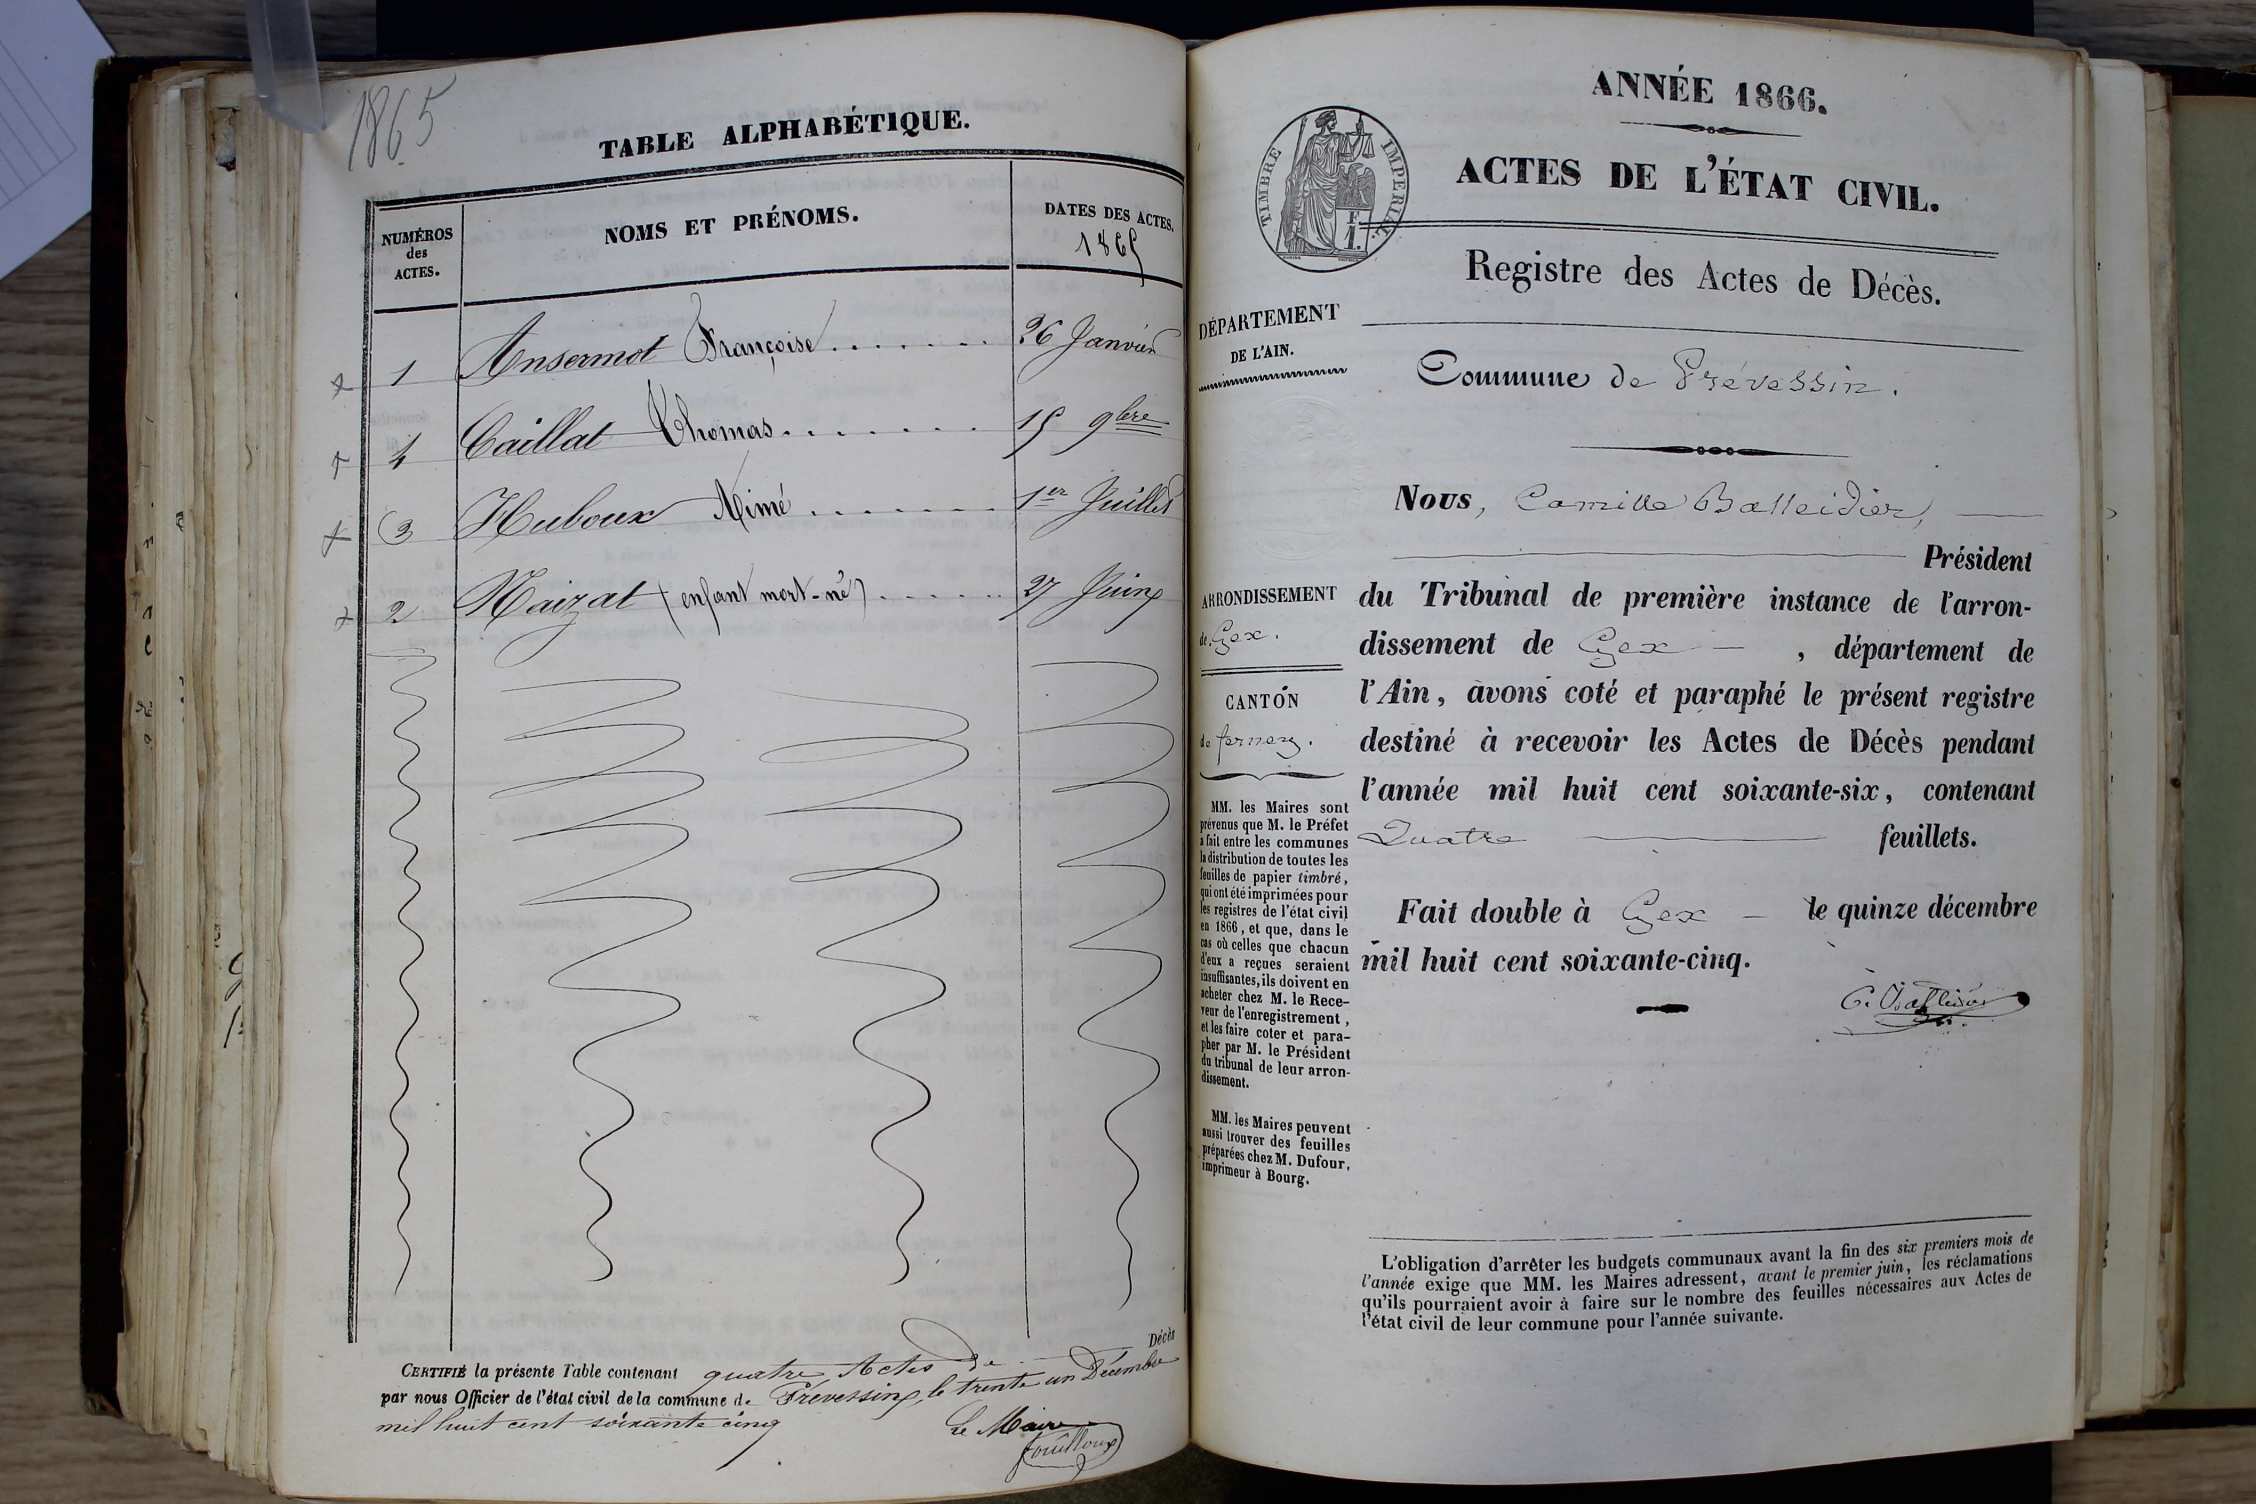 1865
TABLE ALPHABÉTIQUE.
NUMÉROS
des
ACTES.
NOMS ET PRÉNOMS.
DATES DES ACTES.
1865
1 Ansermot Françoise . . . . . . . 26 Janvier
4 Caillat Thomas . . . . . . . 15 9bre
3 Huboux Aimé . . . . . . . 1er Juillet
2 Naizat (enfant mort-né) . . . . . . . 27 Juin
CERTIFIÉ la présente Table contenant quatre Actes de Décès
par nous Officier de l'état civil de la commune de Prévessin, le trente un Décembre
mil huit cent soixante cinq
Le Maire
Fouilloux
ANNÉE 1866.
ACTES DE L'ÉTAT CIVIL.
TIMBRE IMPERIAL
F.
1.
Registre des Actes de Décès.
DÉPARTEMENT
DE L'AIN.
Commune de Prévessin.
Nous, Camille Balleidier,
Président
ARRONDISSEMENT
de Gex.
CANTON
de ferney.
du Tribunal de première instance de l'arron-
dissement de Gex , département de
l'Ain, avons coté et paraphé le présent registre
destiné à recevoir les Actes de Décès pendant
l'année mil huit cent soixante-six, contenant
Quatre feuillets.
Fait double à Gex le quinze décembre
mil huit cent soixante-cinq.
C. Balleidier
MM. les Maires sont
prévenus que M. le Préfet
a fait entre les communes
la distribution de toutes les
feuilles de papier timbré,
qui ont été imprimées pour
les registres de l'état civil
en 1866, et que, dans le
cas où celles que chacun
d'eux a reçues seraient
insuffisantes, ils doivent en
acheter chez M. le Rece-
veur de l'enregistrement,
et les faire coter et para-
pher par M. le Président
du tribunal de leur arron-
dissement.
MM. les Maires peuvent
aussi trouver des feuilles
préparées chez M. Dufour,
imprimeur à Bourg.
L'obligation d'arrêter les budgets communaux avant la fin des six premiers mois de
l'année exige que MM. les Maires adressent, avant le premier juin, les réclamations
qu'ils pourraient avoir à faire sur le nombre des feuilles nécessaires aux Actes de
l'état civil de leur commune pour l'année suivante.